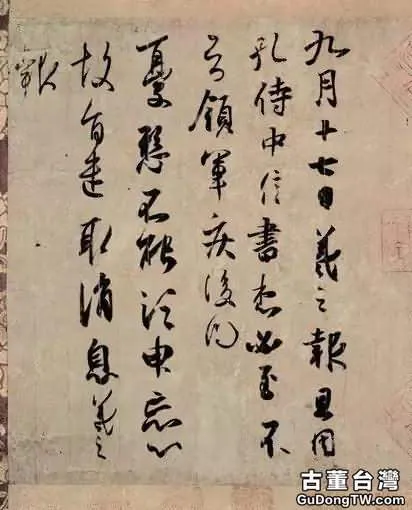 九月十七日羲之報且因
孔侍中信書想必至不
知領軍疾後問
憂懸不能須臾忘心
故旨遣取消息羲之
報
古董台灣
GuDongTW.com